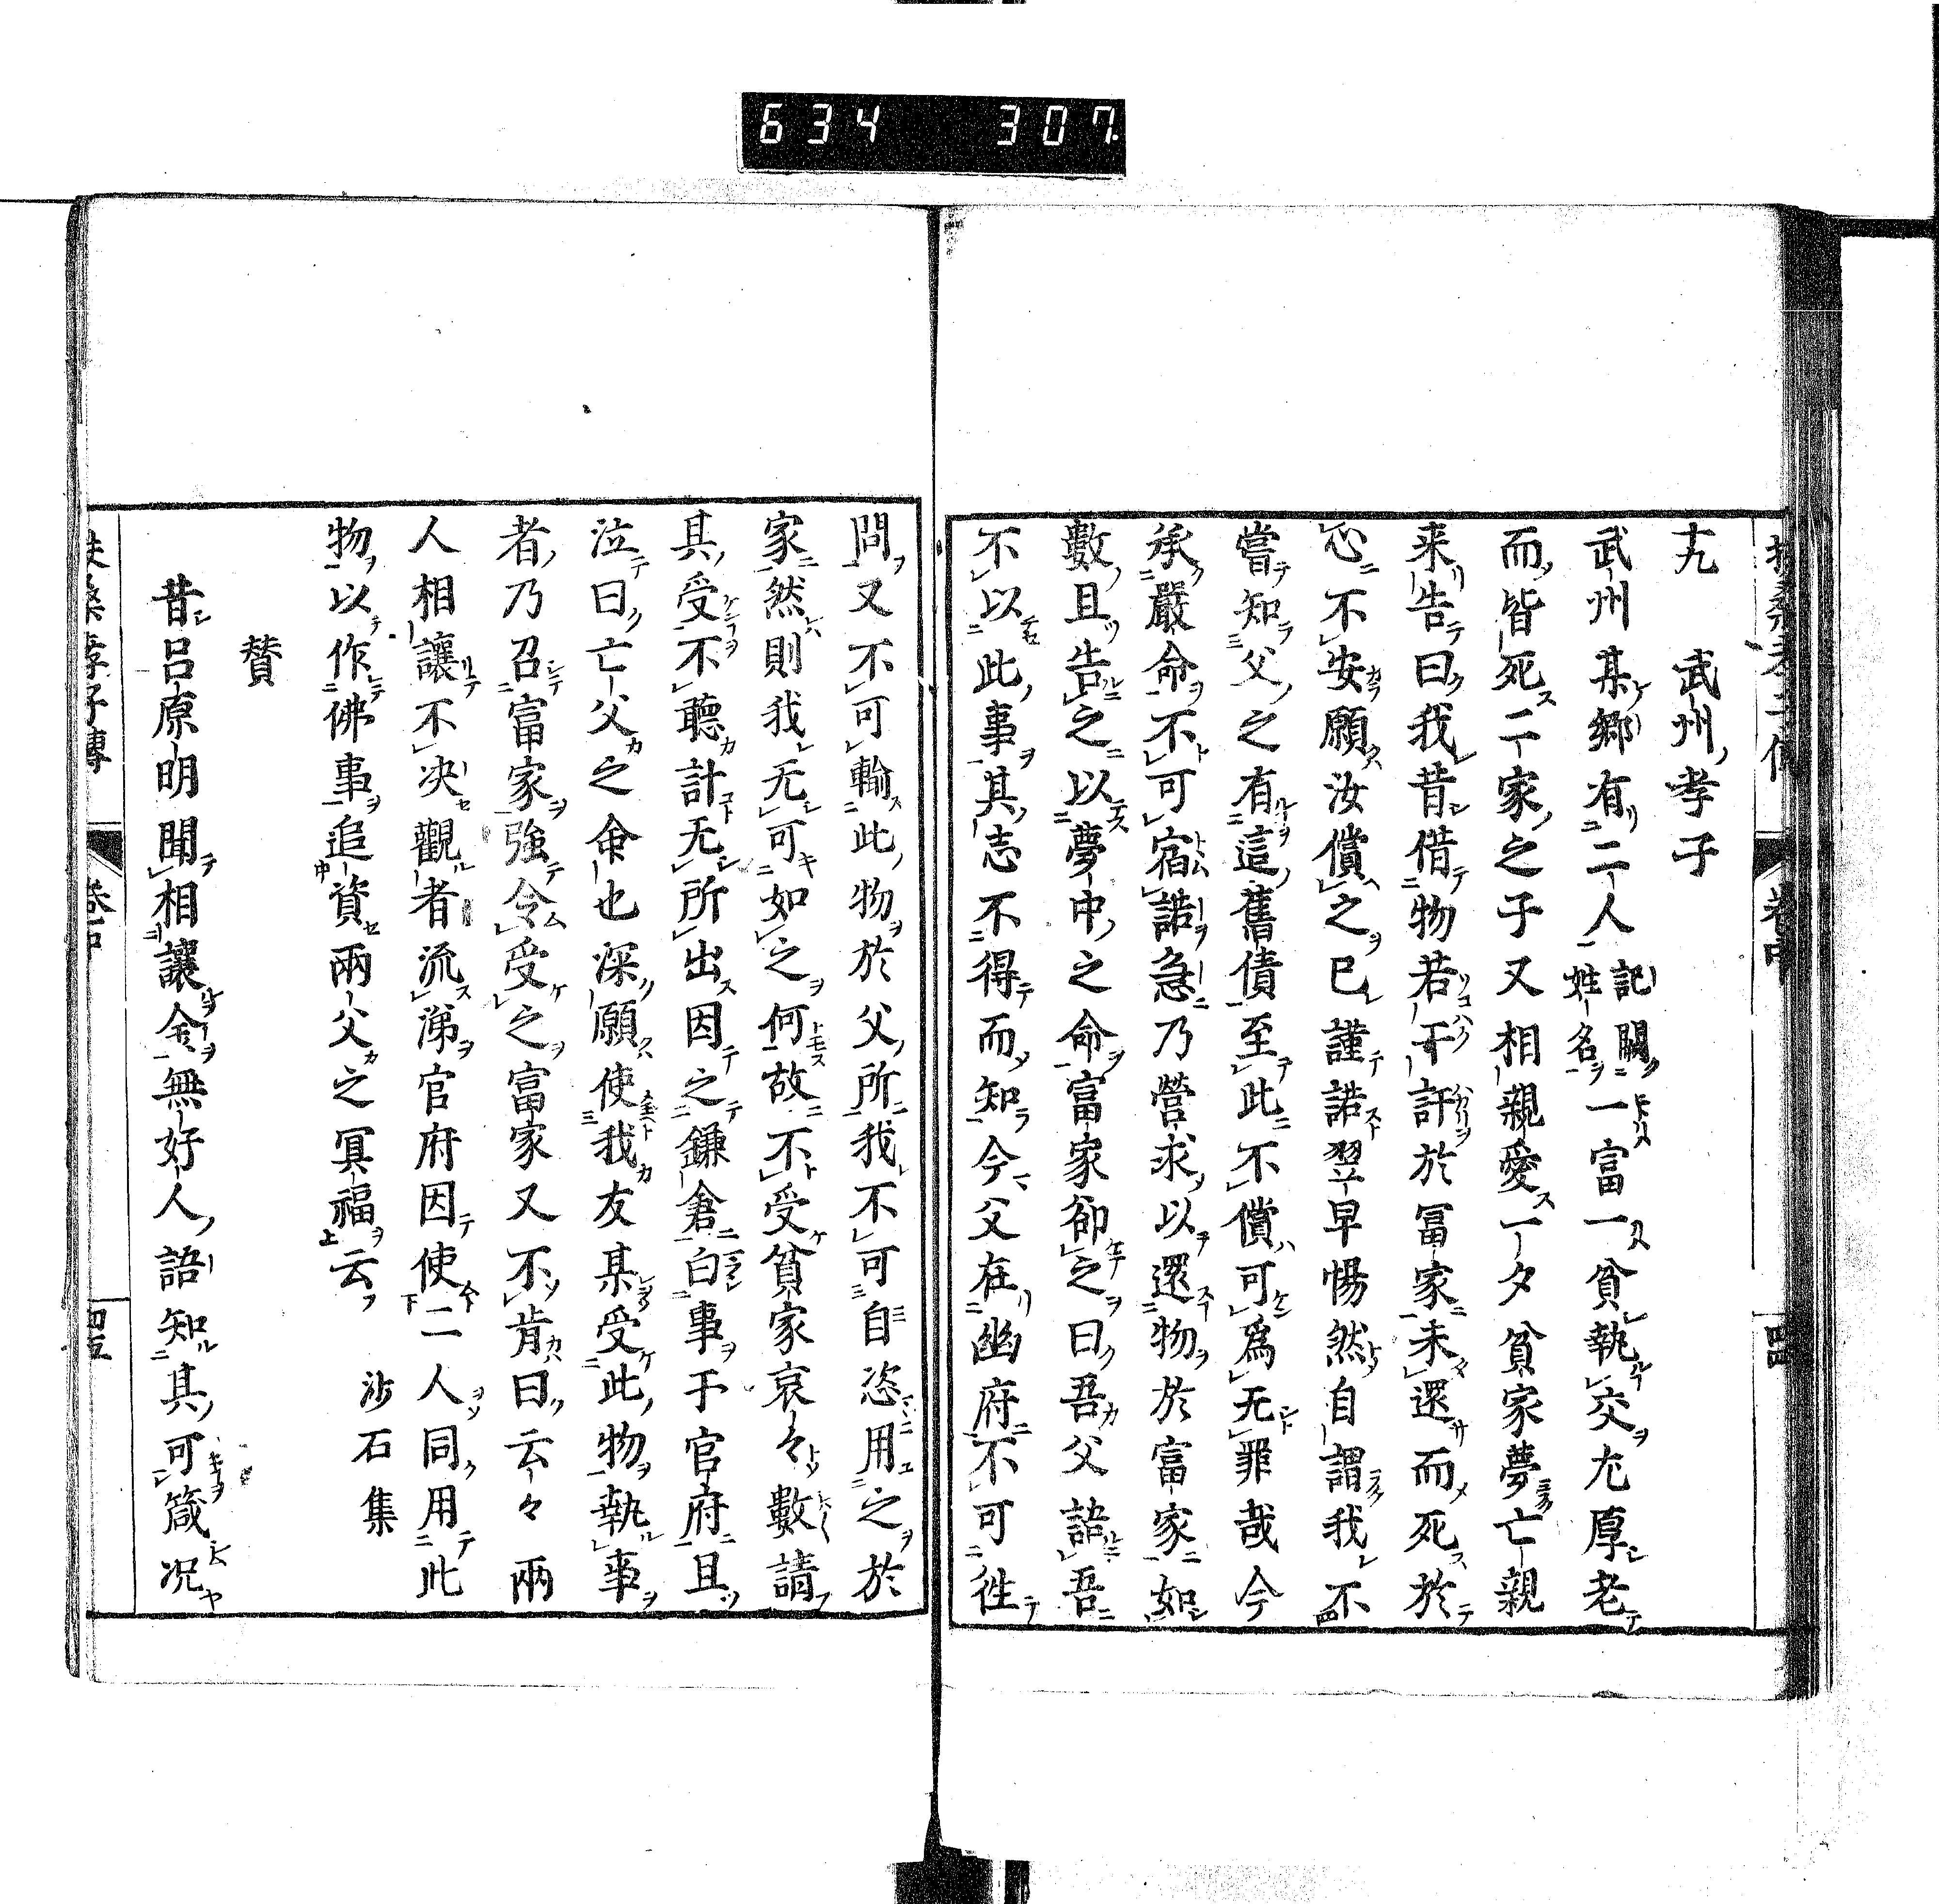 634 307
十九 武州孝子
武州某郷有二人記闕姓名一富一貧執交尤厚老
而皆死二家之子又相親愛一夕貧家夢亡親
来告曰我昔借物若干許於冨家未還而死於
心不安願汝償之已謹諾翌早惕然自謂我不
嘗知父之有這舊債至此不償可爲无罪哉今
承嚴命不可宿諾急乃營求以還物於富家如
數且告之以夢中之命富家卻之曰吾父語吾
不以此事其志不得而知今父在幽府不可徃
問又不可輸此物於父所我不可自恣用之於
家然則我无可如之何故不受貧家哀々數請
其受不聽計无所出因之鎌倉白事于官府且
泣曰亡父之命也深願使我友某受此物執事
者乃召富家強令受之富家又不肯曰云々兩
人相讓不决觀者流涕官府因使二人同用此
物以作佛事追資兩父之冥福云 沙石集
賛
昔呂原明聞相讓金無好人語知其可箴况
扶桑孝子傳 卷中 四五